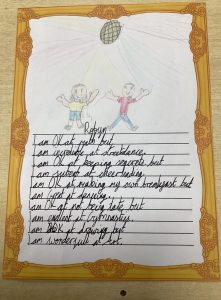 Robyn
I am OK at math but
I am incredible at attendance.
I am OK at keeping secrets but
I am at cheerleading.
I am OK at making my own breakfast but
I am great at dancing.
I am OK at not being late but
I am at gymnastics.
I am OK at drawing but
I am wonderful at art.